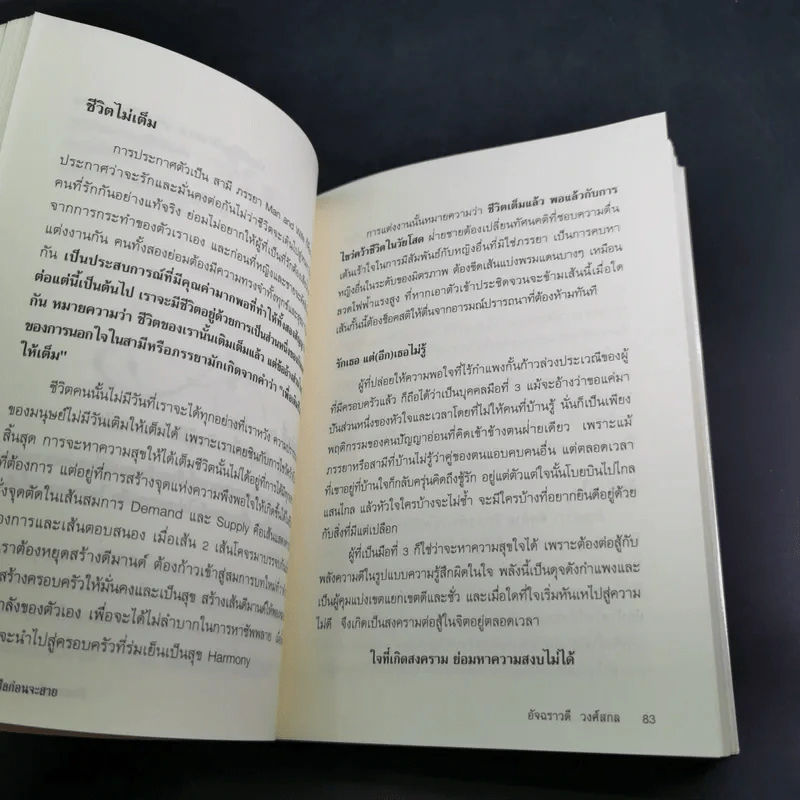 ชีวิตไม่เต็ม
การประกาศตัวเป็น สามี ภรรยา Man and Wife
ประกาศว่าจะรักและมั่นคงต่อกันไม่ว่าชีวิตจะเดินไป
คนที่รักกันอย่างแท้จริง ย่อมไม่อยากให้ผู้ที่เป็นที่รักต้อง
จากการกระทำของตัวเราเอง และก่อนที่หญิงและชาย
แต่งงานกัน คนทั้งสองย่อมต้องมีความทรงจำทั้งทุกข์และ
กัน เป็นประสบการณ์ที่มีคุณค่ามากพอที่ทำให้ทั้งสอง
ต่อแต่นี้เป็นต้นไป เราจะมีชีวิตอยู่ด้วยการเป็นส่วนหนึ่งของ
กัน หมายความว่า ชีวิตของเรานั้นเติมเต็มแล้ว แต่ข้ออ้าง
ของการนอกใจในสามีหรือภรรยามักเกิดจากคำว่า "เพื่อเติม
ให้เต็ม"
ชีวิตคนนั้นไม่มีวันที่เราจะได้ทุกอย่างที่เราหวัง
ของมนุษย์ไม่มีวันเติมให้เต็มได้ เพราะเราเคยชินกับการ
สิ้นสุด การจะหาความสุขให้ได้เต็มชีวิตนั้นไม่ได้อยู่ที่การได้
ที่ต้องการ แต่อยู่ที่การสร้างจุดแห่งความพึงพอใจให้เกิดขึ้น
จุดตัดในเส้นสมการ Demand และ Supply คือเส้น
องการและเส้นตอบสนอง เมื่อเส้น 2 เส้นโคจรมาบรรจบกัน
ราต้องหยุดสร้างดีมานด์ ต้องก้าวเข้าสู่สมการบทใหม่
สร้างครอบครัวให้มั่นคงและเป็นสุข สร้างเส้นดีมานด์ให้
กำลังของตัวเอง เพื่อจะได้ไม่ลำบากในการหาซัพพลาย
จะนำไปสู่ครอบครัวที่ร่มเย็นเป็นสุข Harmony
ก่อนจะสาย
การแต่งงานนั้นหมายความว่า ชีวิตเต็มแล้ว พอแล้วกับการ
ไขว่คว้าชีวิตในวัยโสด ฝ่ายชายต้องเปลี่ยนทัศนคติที่ชอบความตื่น
เต้นเร้าใจในการมีสัมพันธ์กับหญิงอื่นที่มิใช่ภรรยา เป็นการคบหา
หญิงอื่นในระดับของมิตรภาพ ต้องขีดเส้นแบ่งพรมแดนบางๆ เหมือน
ลวดไฟฟ้าแรงสูง ที่หากเอาตัวเข้าประชิดจวนจะข้ามเส้นนี้เมื่อใด
เส้นกั้นนี้ต้องช็อคสติให้ตื่นจากอารมณ์ปรารถนาที่ต้องห้ามทันที
รักเธอ แต่(อีก)เธอไม่รู้
ผู้ที่ปล่อยให้ความพอใจที่ไร้กำแพงกั้นก้าวล่วงประเวณีของผู้
ที่มีครอบครัวแล้ว ก็ถือได้ว่าเป็นบุคคลมือที่ 3 แม้จะอ้างว่าขอแค่มา
ปันส่วนหนึ่งของหัวใจและเวลาโดยที่ไม่ให้คนที่บ้านรู้ นั่นก็เป็นเพียง
พฤติกรรมของคนปัญญาอ่อนที่คิดเข้าข้างตนฝ่ายเดียว เพราะแม้
ภรรยาหรือสามีที่บ้านไม่รู้ว่าคู่ของตนแอบคบคนอื่น แต่ตลอดเวลา
ที่เขาอยู่ที่บ้านใจก็กลับครุ่นคิดถึงชู้รัก อยู่แต่ตัวแต่ใจนั้นโบยบินไปไกล
แสนไกล แล้วหัวใจใครบ้างจะไม่ช้ำ จะมีใครบ้างที่อยากยินดีอยู่ด้วย
กับสิ่งที่มีแต่เปลือก
ผู้ที่เป็นมือที่ 3 ก็ใช่ว่าจะหาความสุขใจได้ เพราะต้องต่อสู้กับ
พลังความดีในรูปแบบความรู้สึกผิดในใจ พลังนี้เป็นดุจดังกำแพงและ
เป็นผู้คุมแบ่งเขตแยกเขตดีและชั่ว และเมื่อใดที่ใจเริ่มหันเหไปสู่ความ
ไม่ดี จึงเกิดเป็นสงครามต่อสู้ในจิตอยู่ตลอดเวลา
ใจที่เกิดสงคราม ย่อมหาความสงบไม่ได้
อัจฉราวดี วงศ์สกล 83